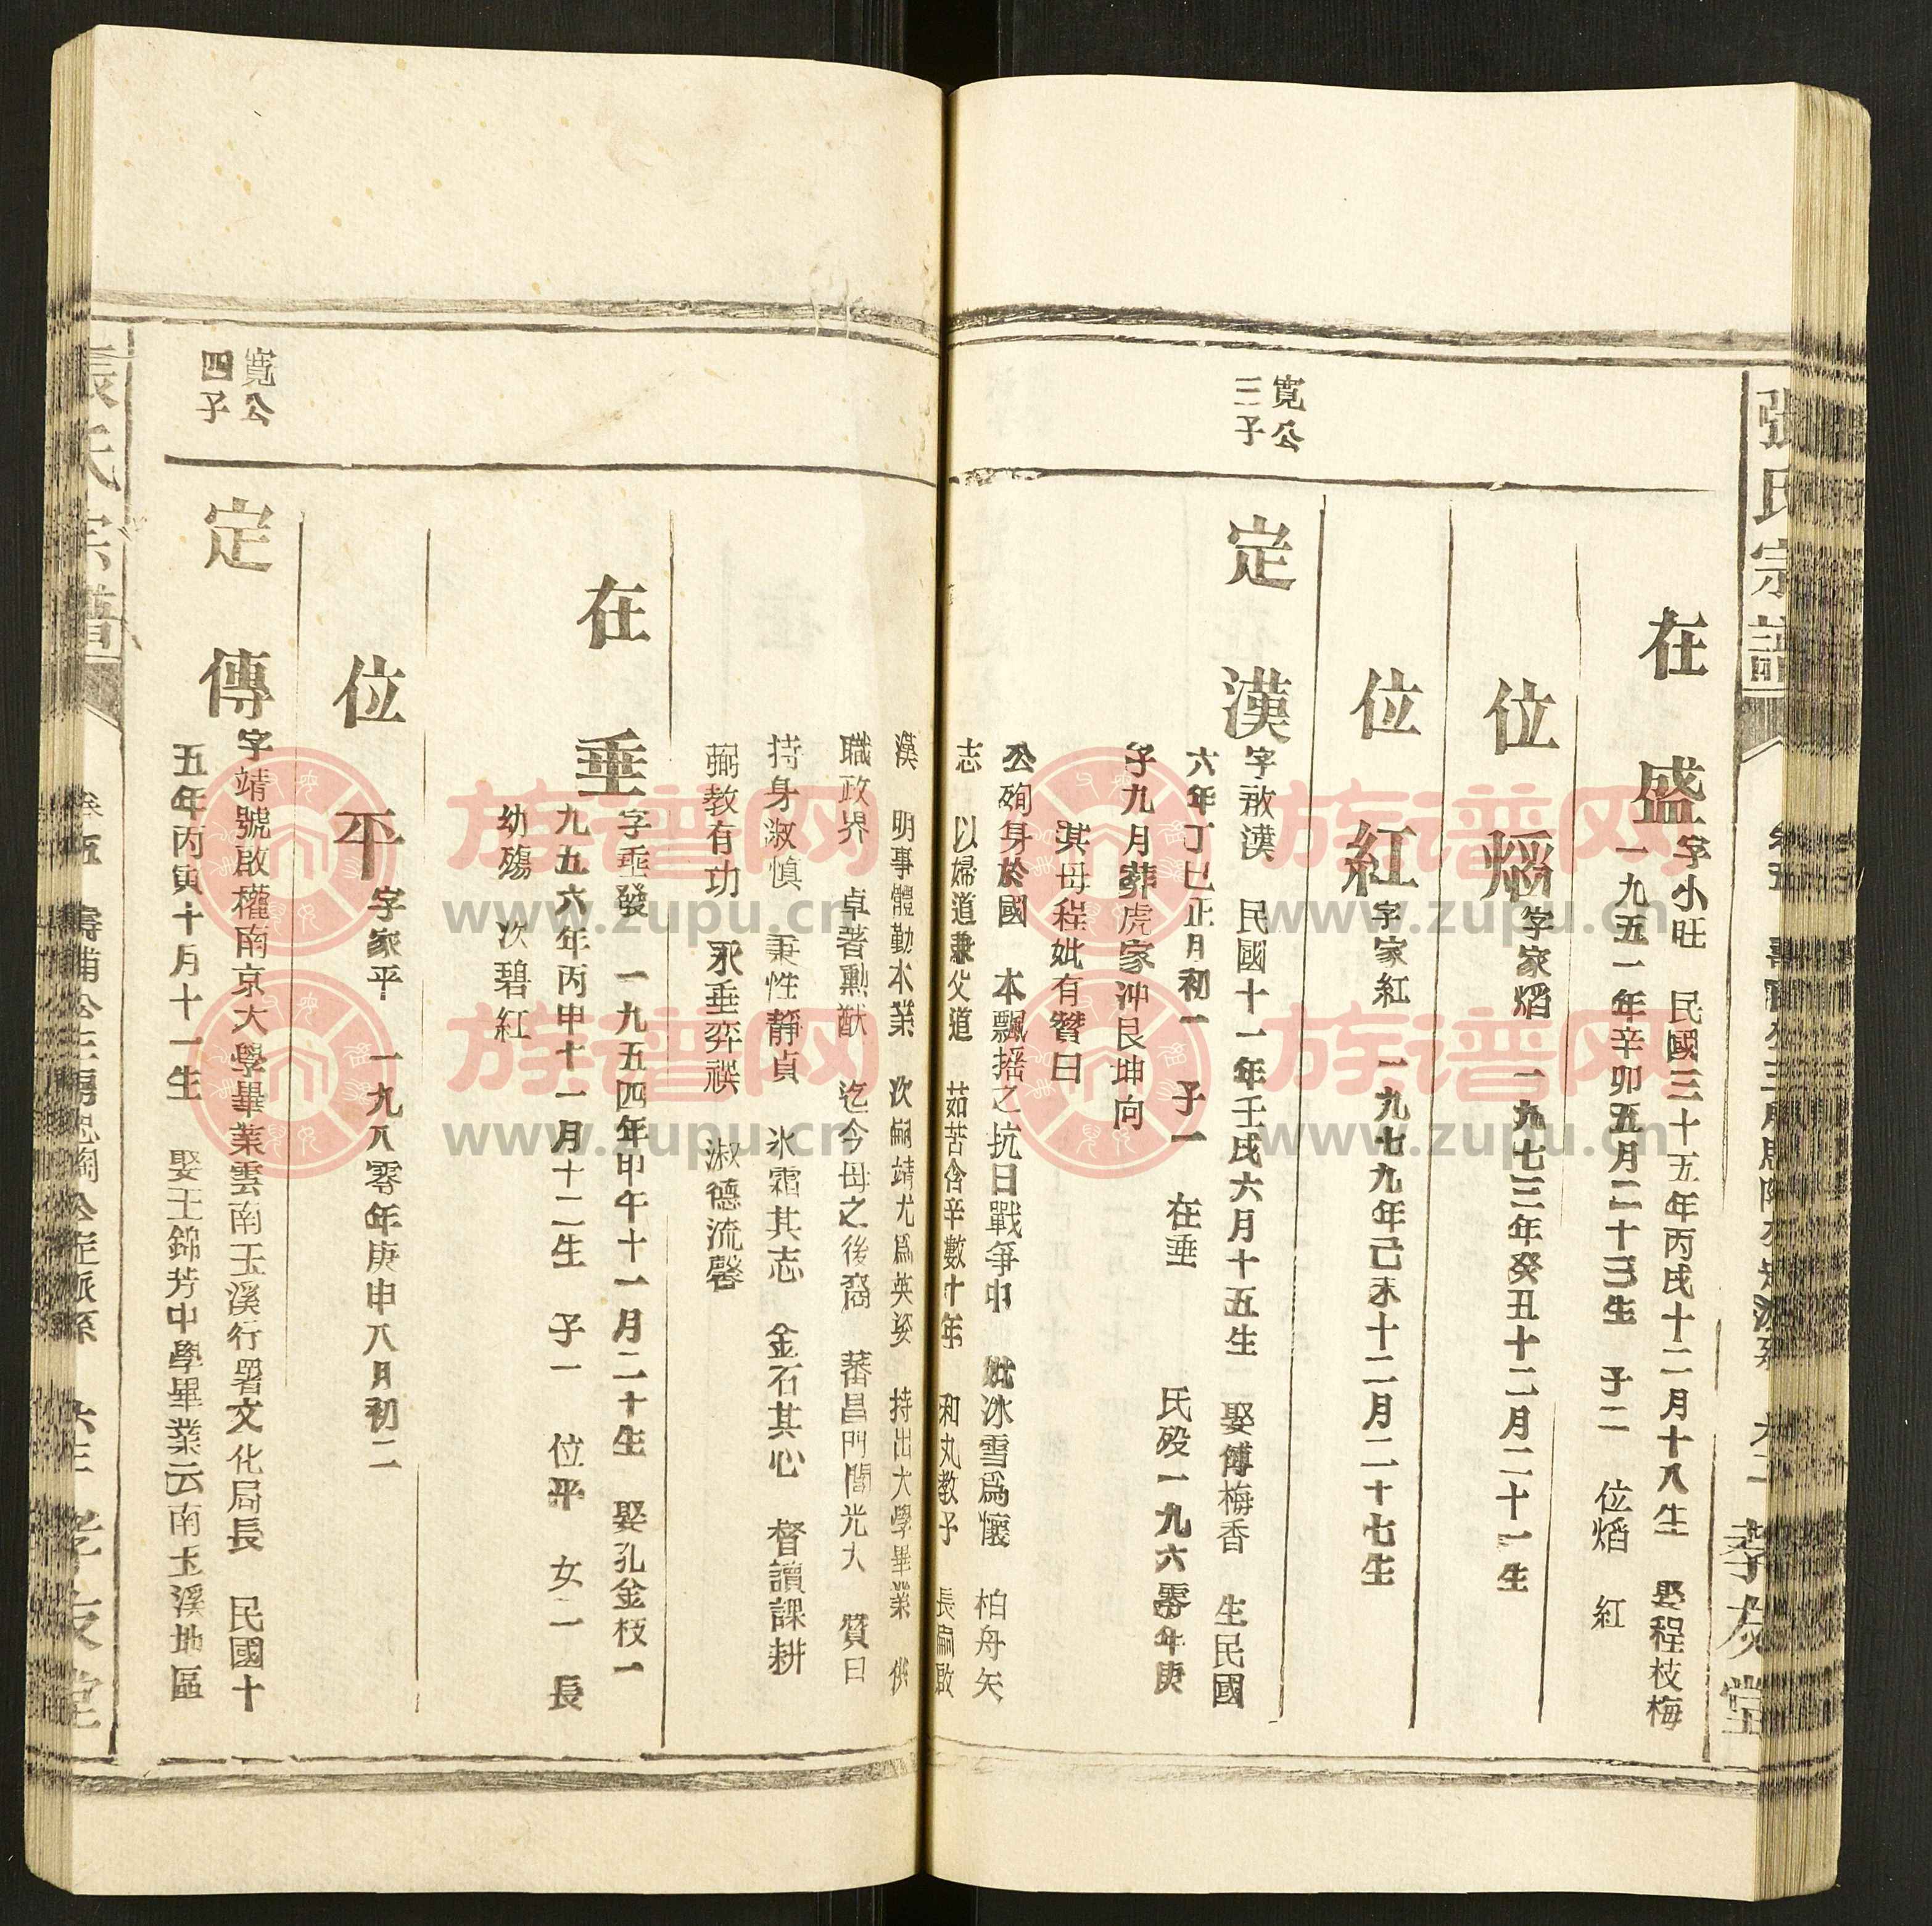 張氏宗譜
孝友堂
在盛
字小旺 民國三十五年丙戌十二月十八生 娶程枝梅
一九五一年辛卯五月二十三生 子二 位熖 紅
位熖
字家熖 一九七三年癸丑十二月二十一生
位紅
字家紅 一九七九年己未十二月二十七生
寬公
三子
定漢
字啟漢 民國十一年壬戌六月十五生 娶傅梅香 生民國
六年丁巳正月初一 子一 在垂 氏殁一九六零年庚
子九月葬虎家沖艮坤向
其母程妣有贊曰
公殉身於國 本飄摇之抗日戰争中 妣冰雪爲懷 柏舟矢
志 以婦道兼父道 茹苦含辛數十年 和丸教子 長嗣啟
漢 明事體勤本業 次嗣靖尤爲英姿 持出大學畢業 供
職政界 卓著勳猷 迄今母之後裔 蕃昌門閭光大 贊曰
持身淑慎 秉性靜貞 氷霜其志 金石其心 督讀課耕
弼教有功 永垂弈禩 淑德流馨
在垂
字垂發 一九五四年甲午十一月二十生 娶孔金枝一
九五六年丙申十一月十二生 子一 位平 女二 長
幼殤 次碧紅
位平
字家平 一九八零年庚申八月初二
寬公
四子
定傳
字靖號啟權南京大學畢業雲南玉溪行署文化局長 民國十
五年丙寅十月十一生 娶王錦芳中學畢業云南玉溪地區
張氏宗譜
卷五
孝友堂
族谱网
www.zupu.cn
族谱网
www.zupu.cn
族谱网
www.zupu.cn
族谱网
www.zupu.cn